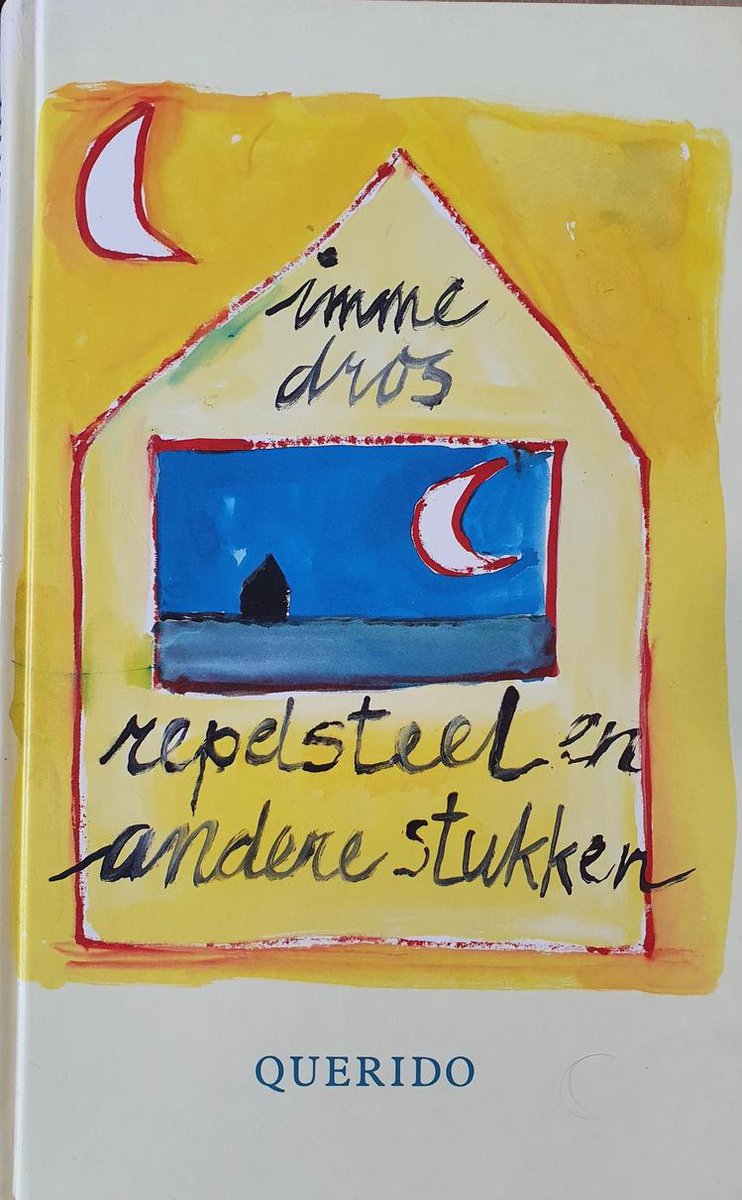 imme
dros
repelsteel en
andere stukken
QUERIDO